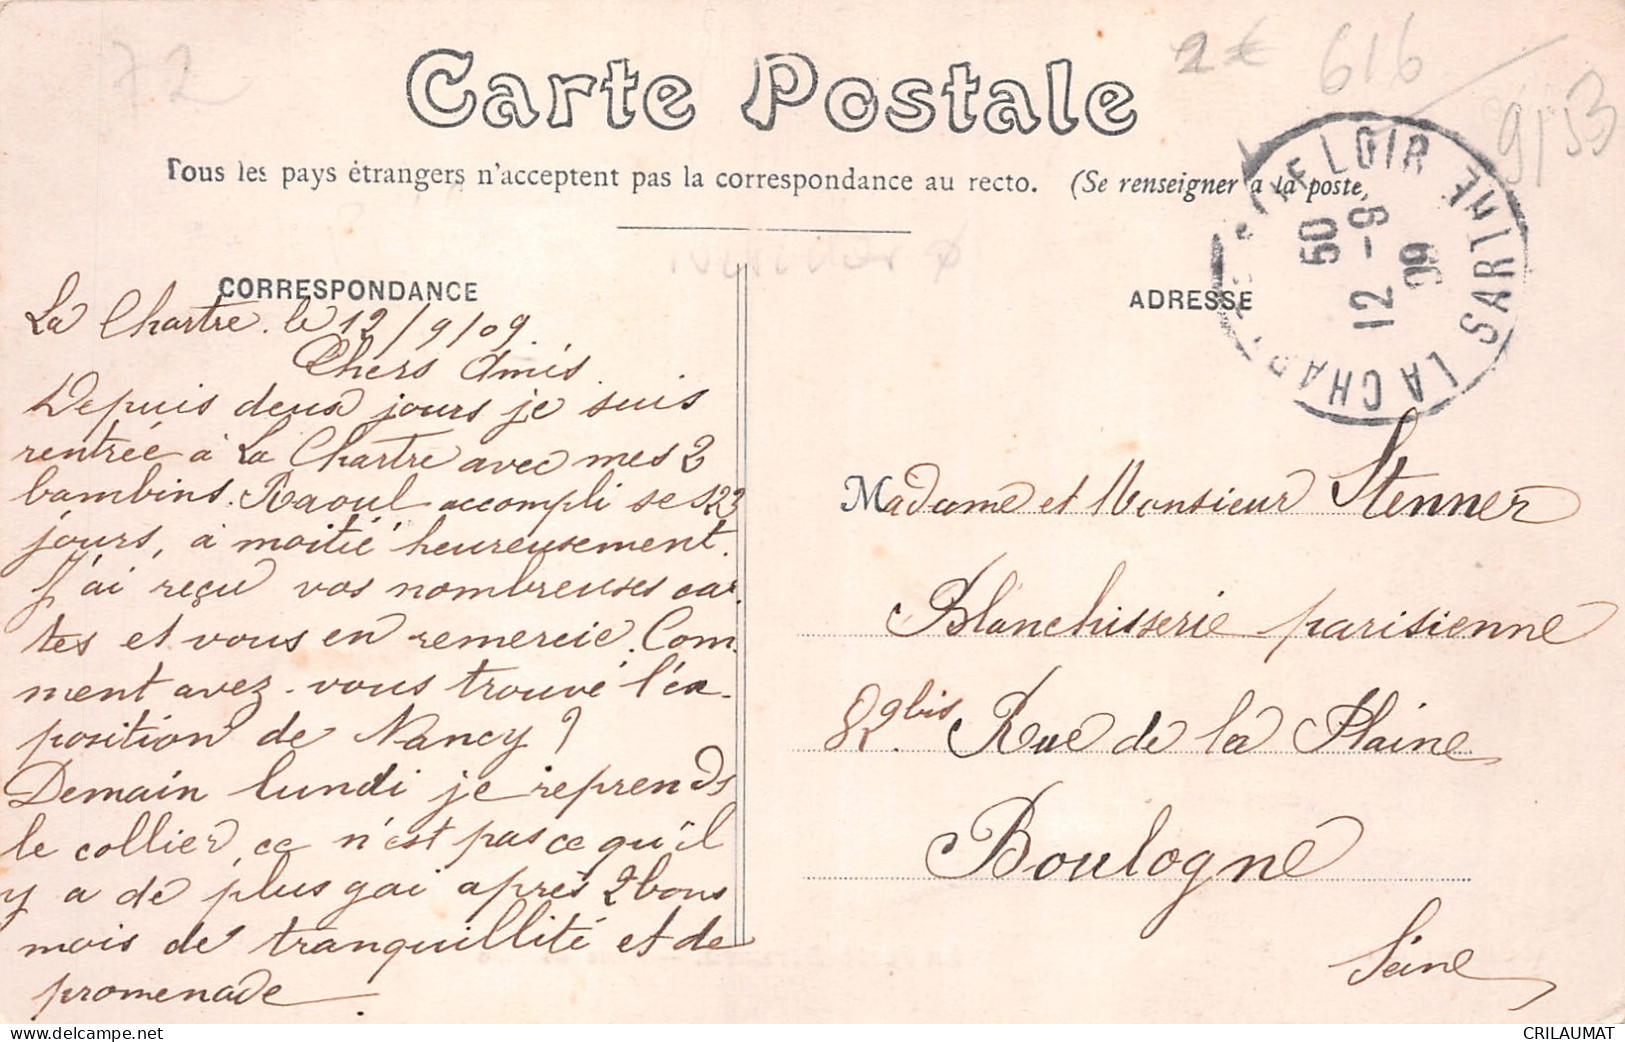 72
2€ 616
9153
Carte Postale
Tous les pays étrangers n'acceptent pas la correspondance au recto. (Se renseigner à la poste,
CORRESPONDANCE
ADRESSE
LA CHARTRE S. LE LOIR SARTHE
50
12 -9
09
La Chartre. le 12/9/09.
Chers Amis.
Depuis deux jours je suis
rentrée à La Chartre avec mes 2
bambins. Raoul accompli ses 23
jours, à moitié heureusement.
J'ai reçu vos nombreuses car.
tes et vous en remercie. Com.
ment avez-vous trouvé l'ex-
position de Nancy ?
Demain lundi je reprends
le collier, ce n'est pas ce qu'il
y a de plus gai après 2 bons
mois de tranquillité et de
promenade.
Madame et Monsieur Stenner
Blanchisserie parisienne
82 bis. Rue de la Plaine
Boulogne
Seine
www.delcampe.net
CRILAUMAT